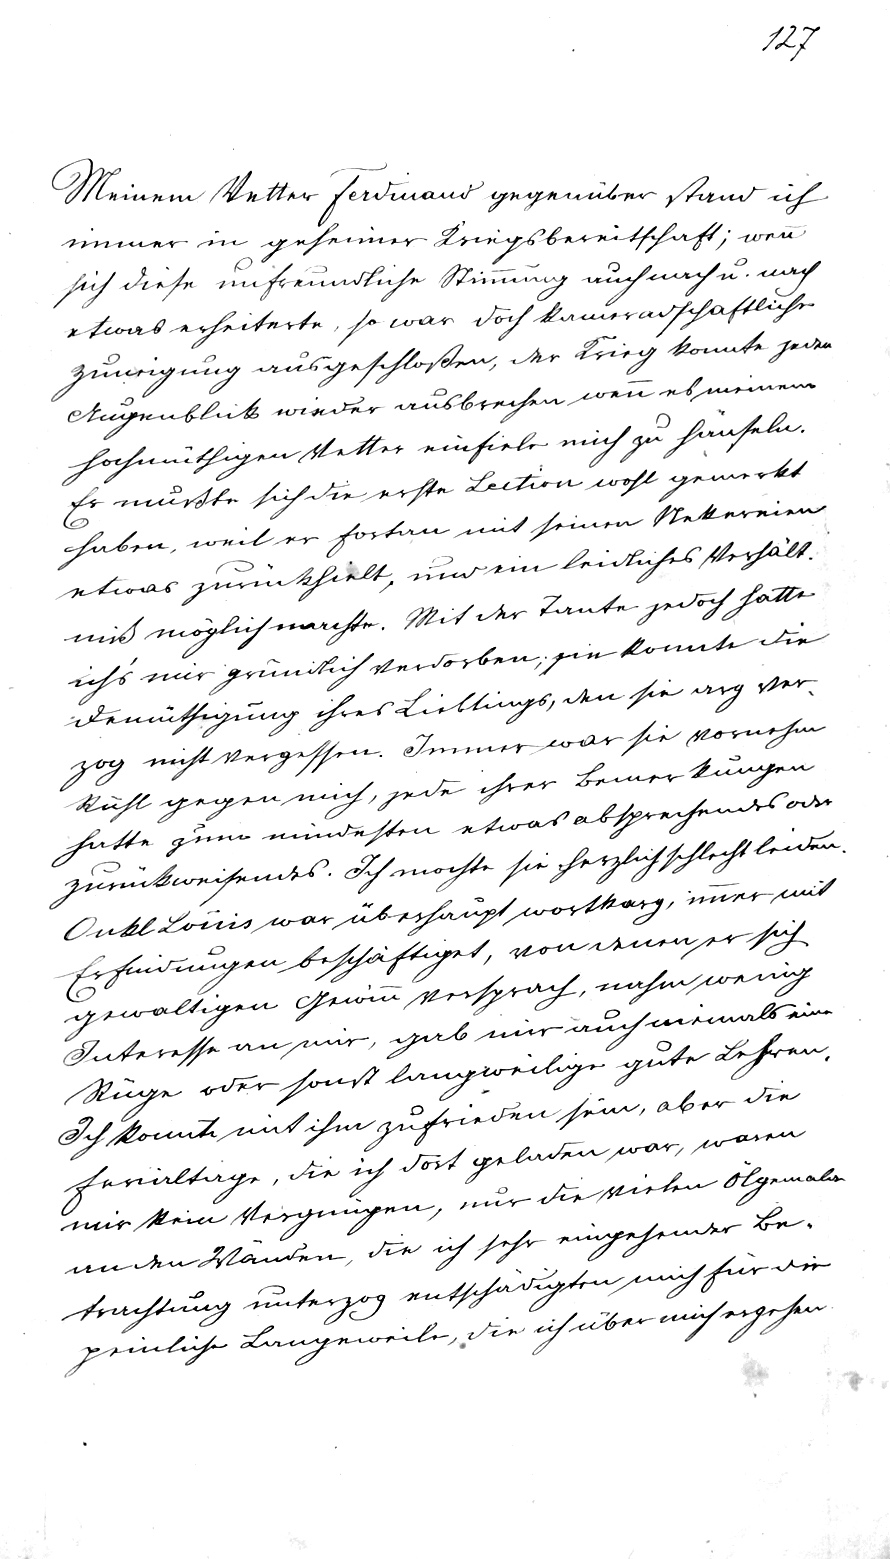 127
Meinem Vetter Ferdinand gegenüber stand ich
immer in geheimer Kriegsbereitschaft; wen̄
sich diese unfreundliche Stim̄ung auch nach u. nach
etwas erheiterte, so war doch kameradschaftliche
Zuneigung ausgeschloßen, der Krieg konnte jeden
Augenblick wieder ausbrechen wen̄ es meinem
hochmüthigen Vetter einfiele mich zu hänseln.
Er mußte sich die erste Lection wohl gemerkt
haben, weil er fortan mit seinen Nekereien
etwas zurückhielt, und ein leidliches Verhält-
niß möglich machte. Mit der Tante jedoch hatte
ich's mir gründlich verdorben; sie konnte die
Demüthigung ihres Lieblings, den sie arg ver-
zog nicht vergessen. Immer war sie vornehm
kühl gegen mich, jede ihrer Bemerkungen
hatte zum mindesten etwas absprechendes oder
zurückweisendes. Ich mochte sie herzlich schlecht leiden.
Onkl Louis war überhaupt wortkarg, im̄er mit
Erfindungen beschäftiget, von denen er sich
gewaltigen Gewin̄ versprach, nahm wenig
Interesse an mir, gab mir auch niemals eine
Rüge oder sonst langweilige gute Lehren.
Ich konnte mit ihm zufrieden sein, aber die
Ferialtage, die ich dort geladen war, waren
mir kein Vergnügen, nur die vielen Ölgemälde
an den Wänden, die ich sehr eingehender Be-
trachtung unterzog entschädigten mich für die
peinliche Langeweile, die ich über mich ergehen